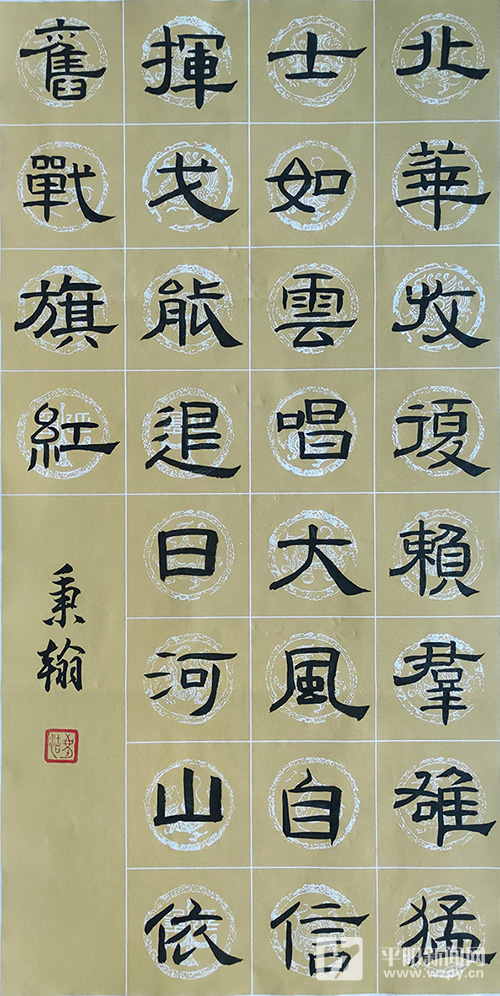 北華收復賴羣雄猛
士如雲唱大風自信
揮戈能退日河山依
舊戰旗紅
秉翰
平阳新闻网
www.wzpy.cn